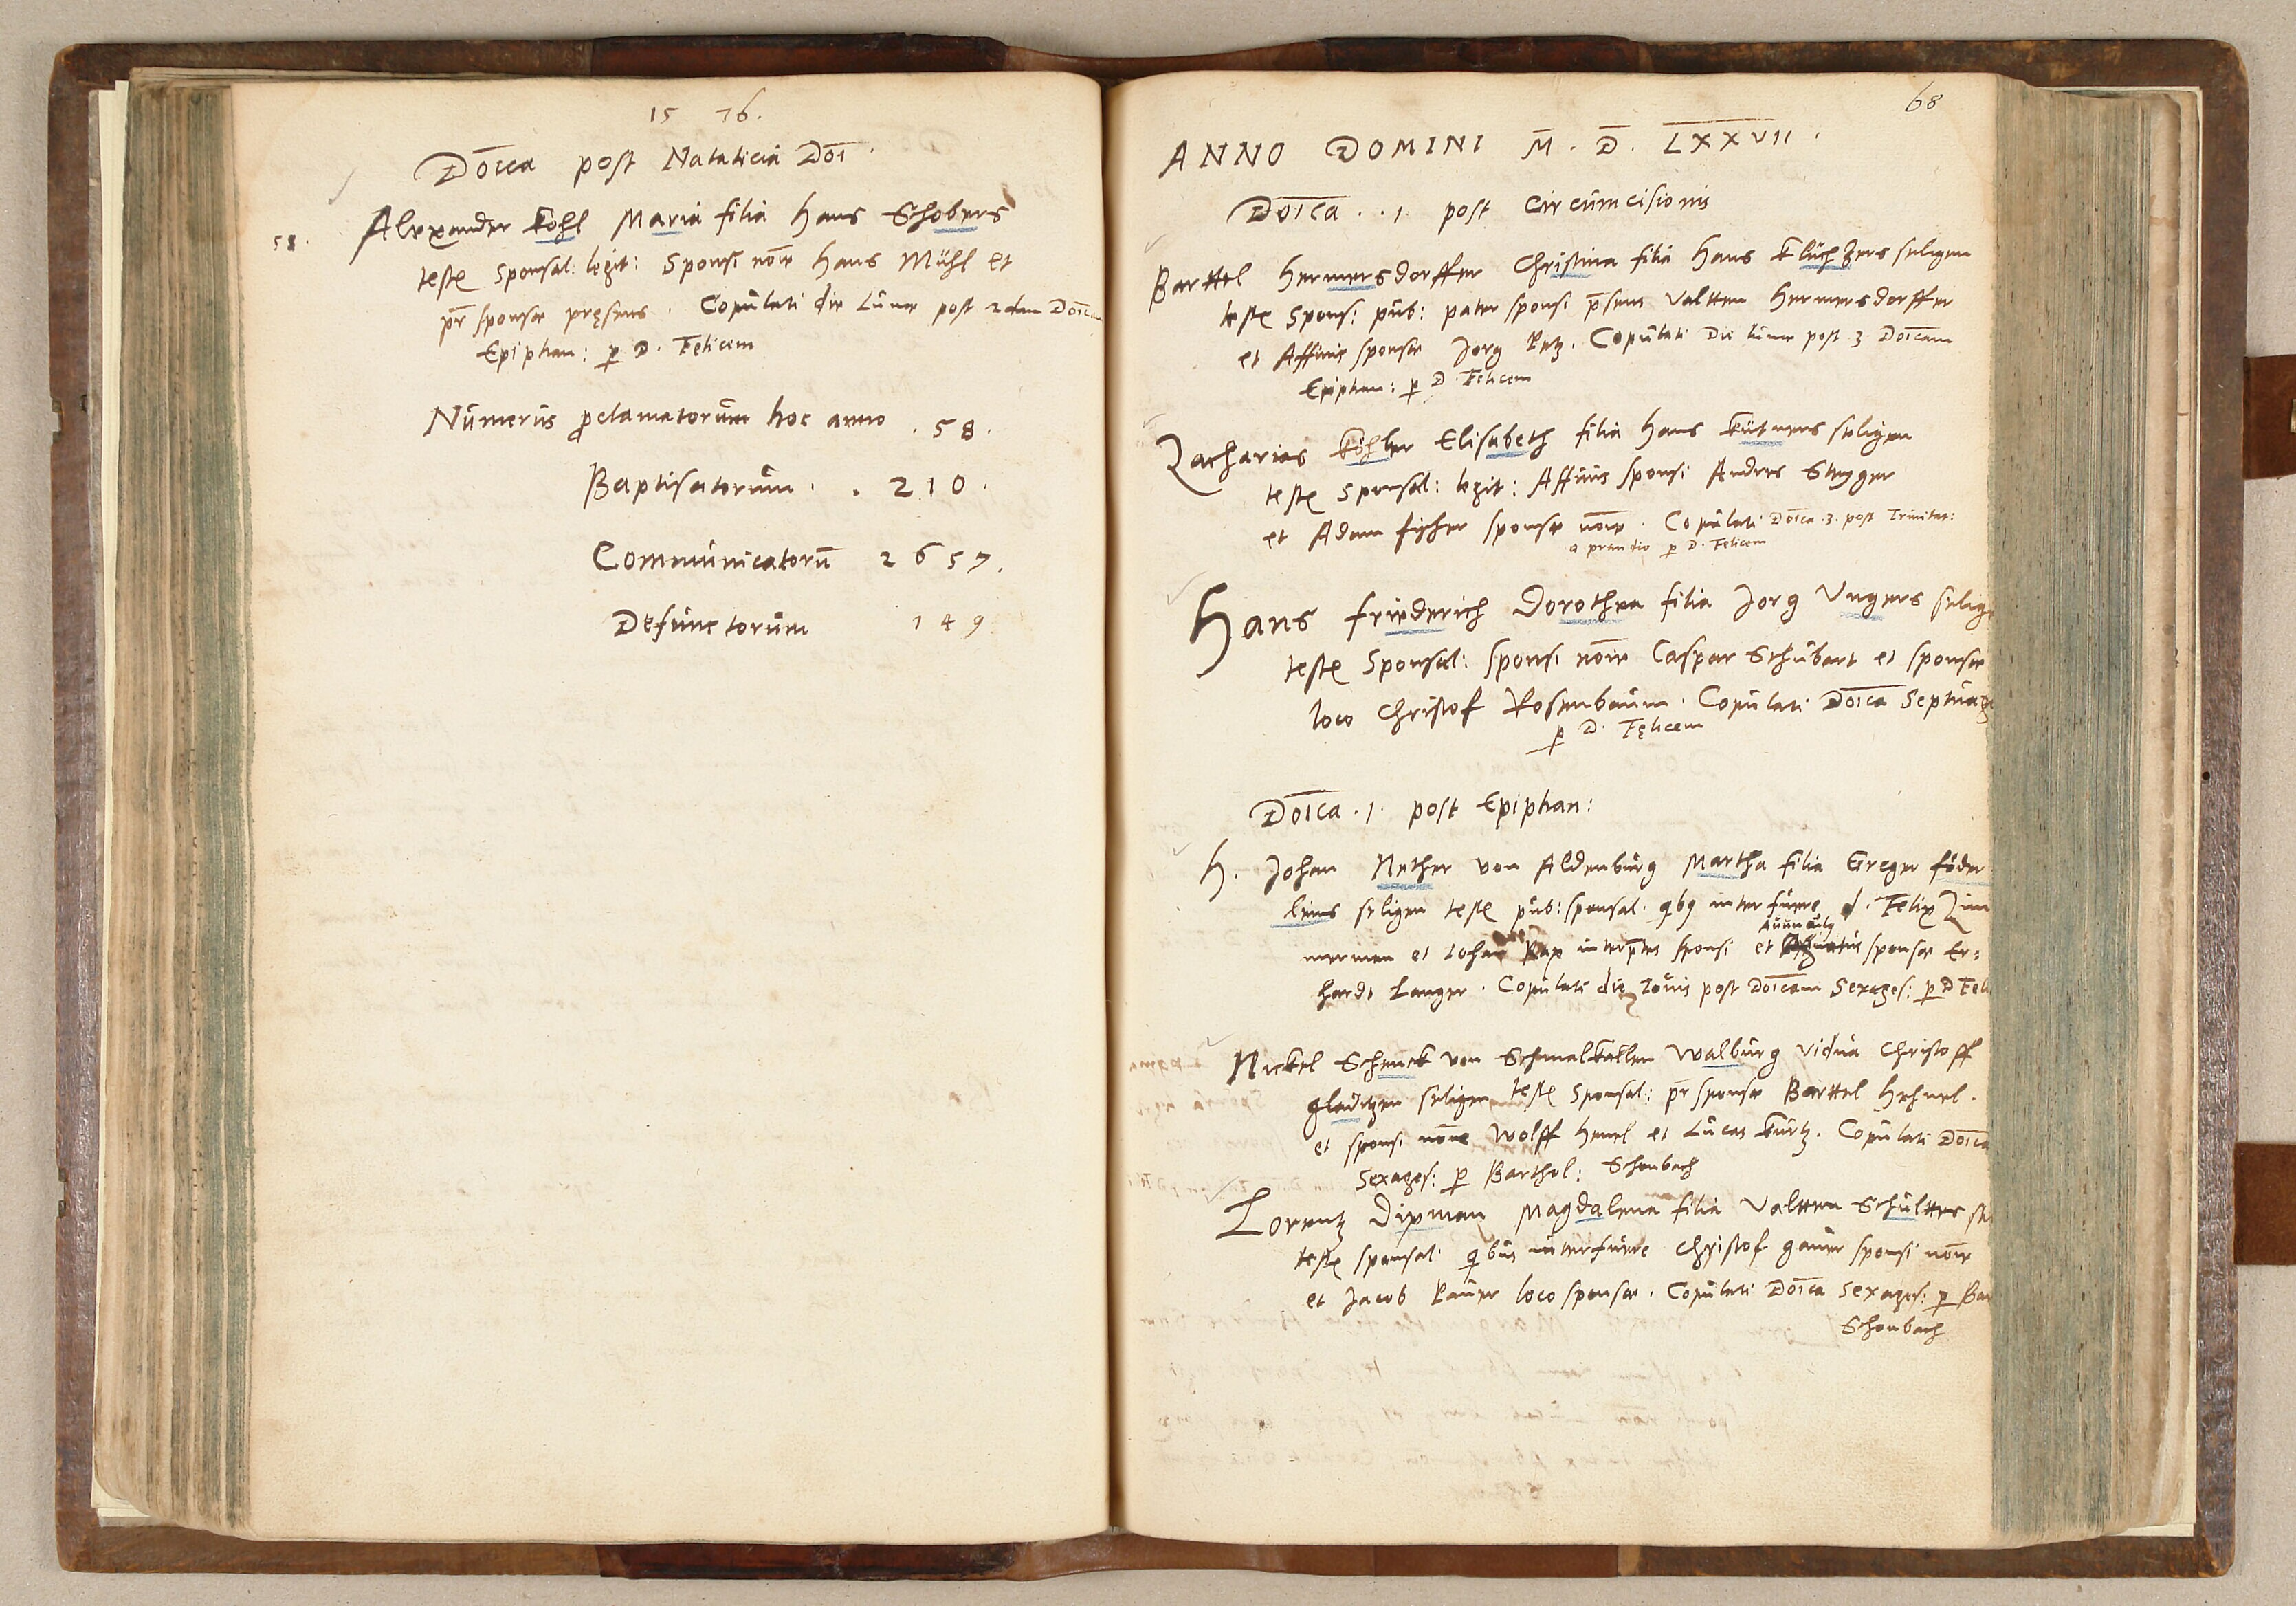 15 76.
Do͞ica post Nataliciá Do͞i.
58. Alexander Kohl Maria filia Hans Schobers
teste Sponsal: legit: Sponsi no͞ie Hans Mühl et
p͞r sponsae pręsens. Copulati die Lunae post 2dam Do͞icam
Epiphan: p D. Felicem
Numerus proclamatorum hoc anno . 58.
Baptisatorum . . 210.
Communicatorū 2657.
Defunctorum 149
68
ANNO DOMINI M̄. D̄. LXXVII.
Do͞ica . . 1. post Circumcisionis
Barttel Hermersdorffer Christina filia Hans seligen
teste Sponsi pub: pater sponsi p͞sens Valtten Hermersdorffer
et Affinis sponsae Jorg . Copulati Die lunae post .3. Do͞icam
Epiphan: p D. Felicem
Zacharias Köhler Elisabeth filia Hans Kütners seligen
teste Sponsal: legit: Affinis sponsi Andres
et Adam fischer sponsae no͞ie. Copulati Do͞ica .3. post Trinitat:
a prandio p D. Felicem
Hans Friederich Dorothea filia Jorg Ungers selig
teste Sponsal: sponsi no͞ie Caspar Schubart et sponsae
loco Christof Rosenbaum. Copulati Do͞ica Septuag
p D. Felicem
Do͞ica .1. post Epiphan:
H. Johan Nether von Aldenburg Martha filia Greger föder
leins seligen teste pub: sponsal. qbq interfuere d. Felix Zim
merman et Johan interp͞tes sponsi et Avunculq sponsae Er=
hardt Langer. Copulati die Iovis post Do͞icam Sexages: p D Feli
Nickel Schenck von Schmalkallen Walburg vidua Christoff
gladitzen seligen teste Sponsal: p͞r sponsae Barttel Hehnel.
et sponsi no͞ie Wolff Henel et Lucas Kurtz. Copulati Do͞ica
Sexages: p Barthol: Schonbach
Lorentz Dipman Magdalena filia Valtten Schultters se
teste sponsal. qbus interfuere Christof gauer sponsi no͞ie
et Jacob loco sponsae. Copulati Do͞ica Sexages: p Bar
Schonbach